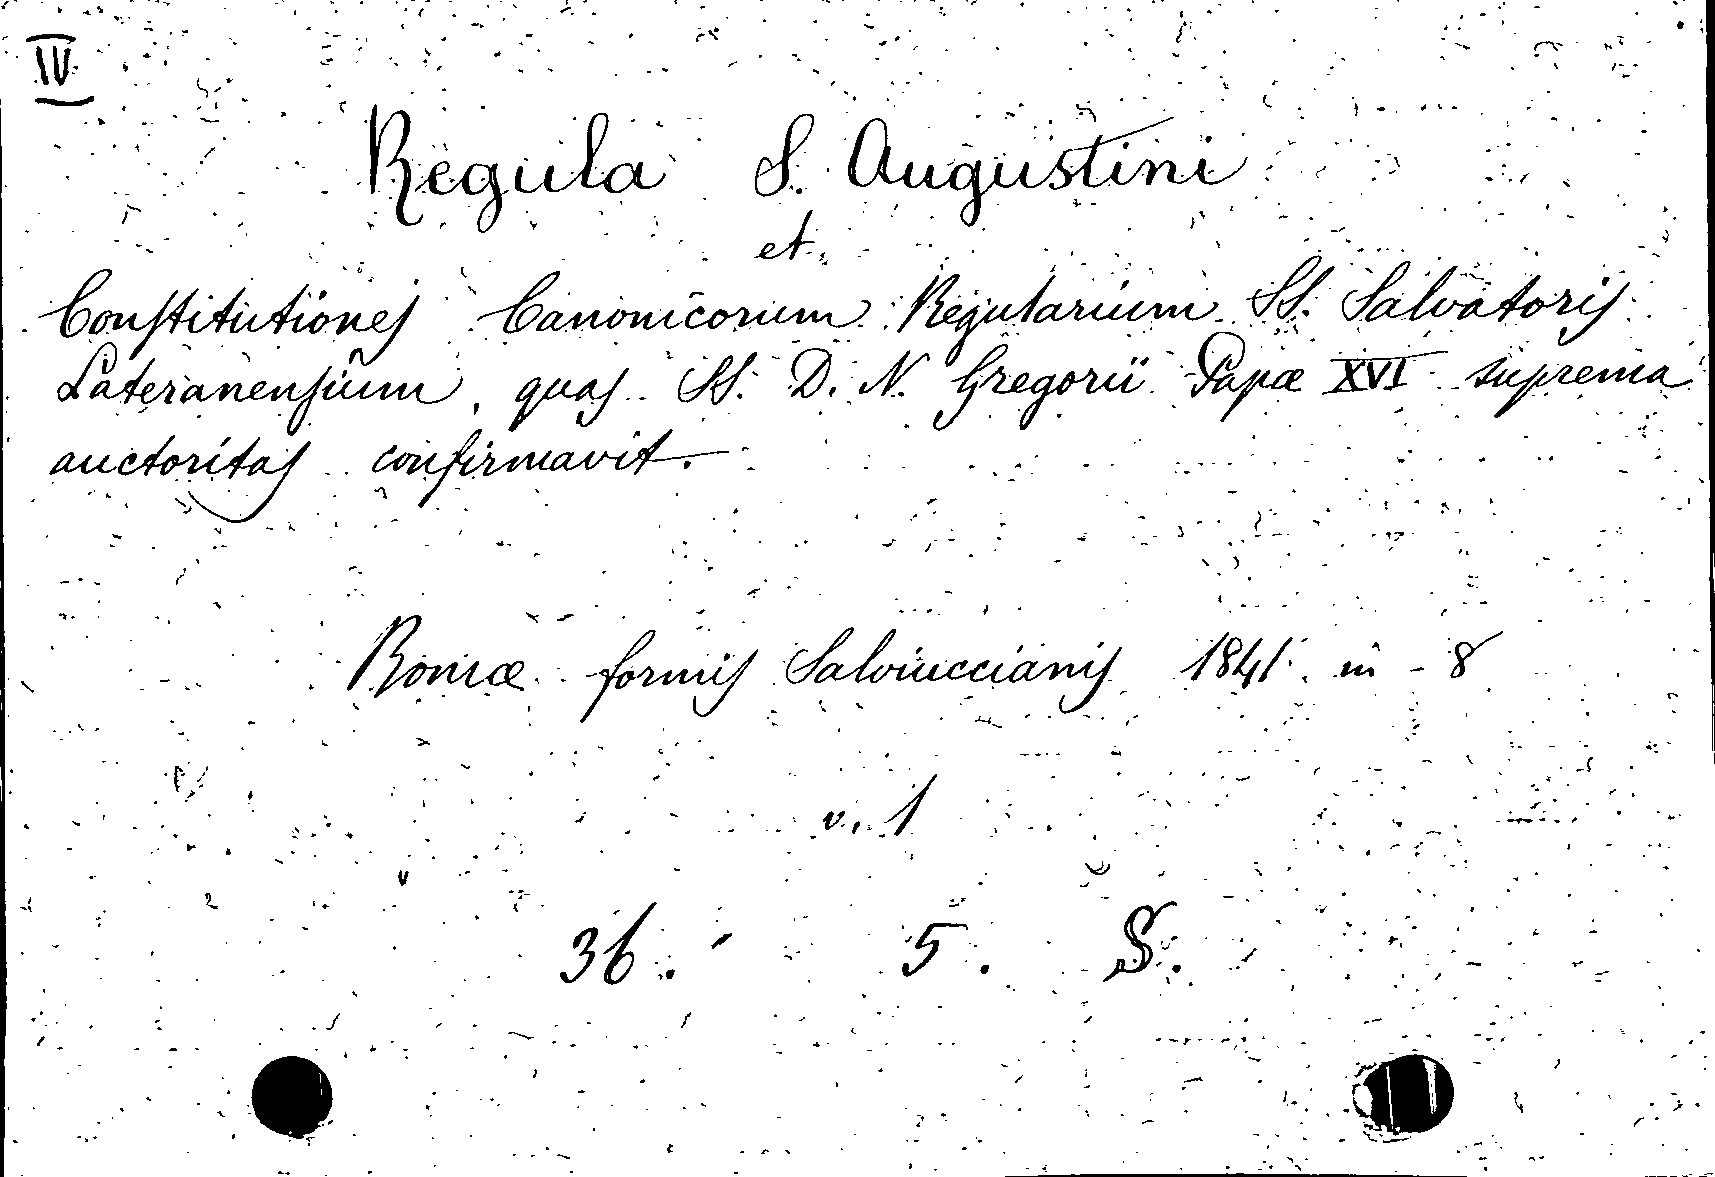 IV
Regula S. Augustini
et
Constitutiones Canonicorum Regularium SS. Salvatoris
Lateranensium, quas SS. D. N. Gregorii Papæ XVI suprema
auctoritas confirmavit.
Romæ formis Salviuccianis 1841. in - 8
v. 1
36. 5. S.